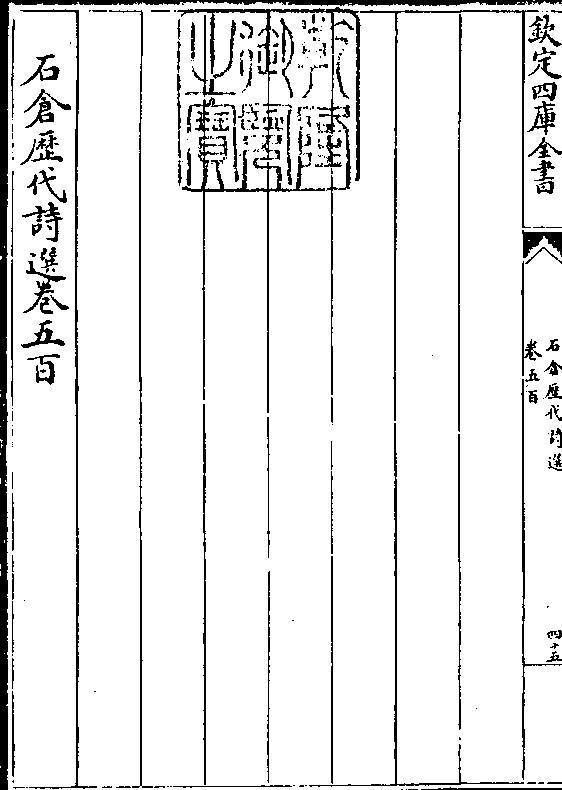 欽定四庫全書
石倉歷代詩選
卷五百
四十五
乾隆
御覽
之寶
石倉歷代詩選卷五百